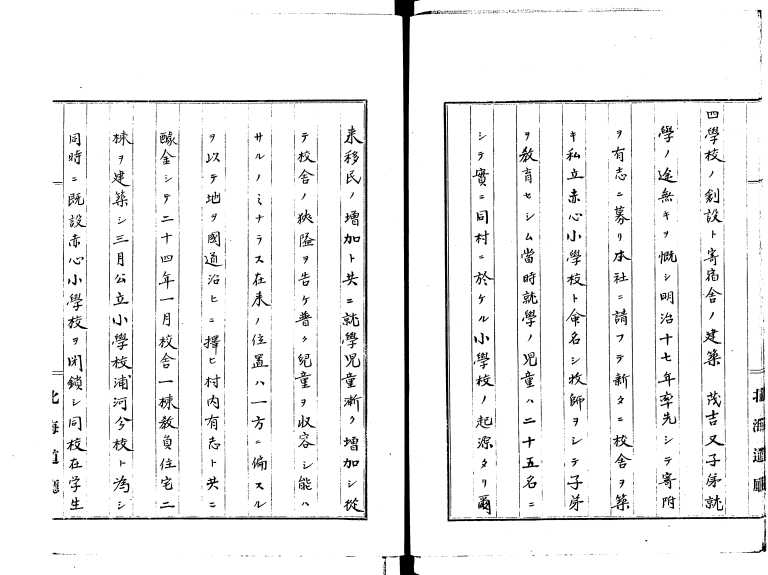 四學校ノ創設ト寄宿舎ノ建築　茂吉又子弟就
學ノ途無キヲ慨シ明治十七年率先シテ寄附
ヲ有志ニ募リ本社ニ請フテ新タニ校舎ヲ築
キ私立赤心小學校ト命名シ牧師ヲシテ子弟
ヲ教育セシム當時就學ノ児童ハ二十五名ニ
シテ實ニ同村ニ於ケル小學校ノ起源タリ爾
来移民ノ増加ト共ニ就學児童漸ク増加シ從
テ校舎ノ狹隘ヲ告ケ普ク児童ヲ収容シ能ハ
サルノミナラス在来ノ位置ハ一方ニ偏スル
ヲ以テ地ヲ國道沿ヒニ擇ヒ村内有志ト共ニ
醵金シテ二十四年一月校舎一棟教員住宅二
棟ヲ建築シ三月公立小學校浦河分校ト為シ
同時ニ既設赤心小學校ヲ閉鎖シ同校在学生
北海道廳
北海道廳